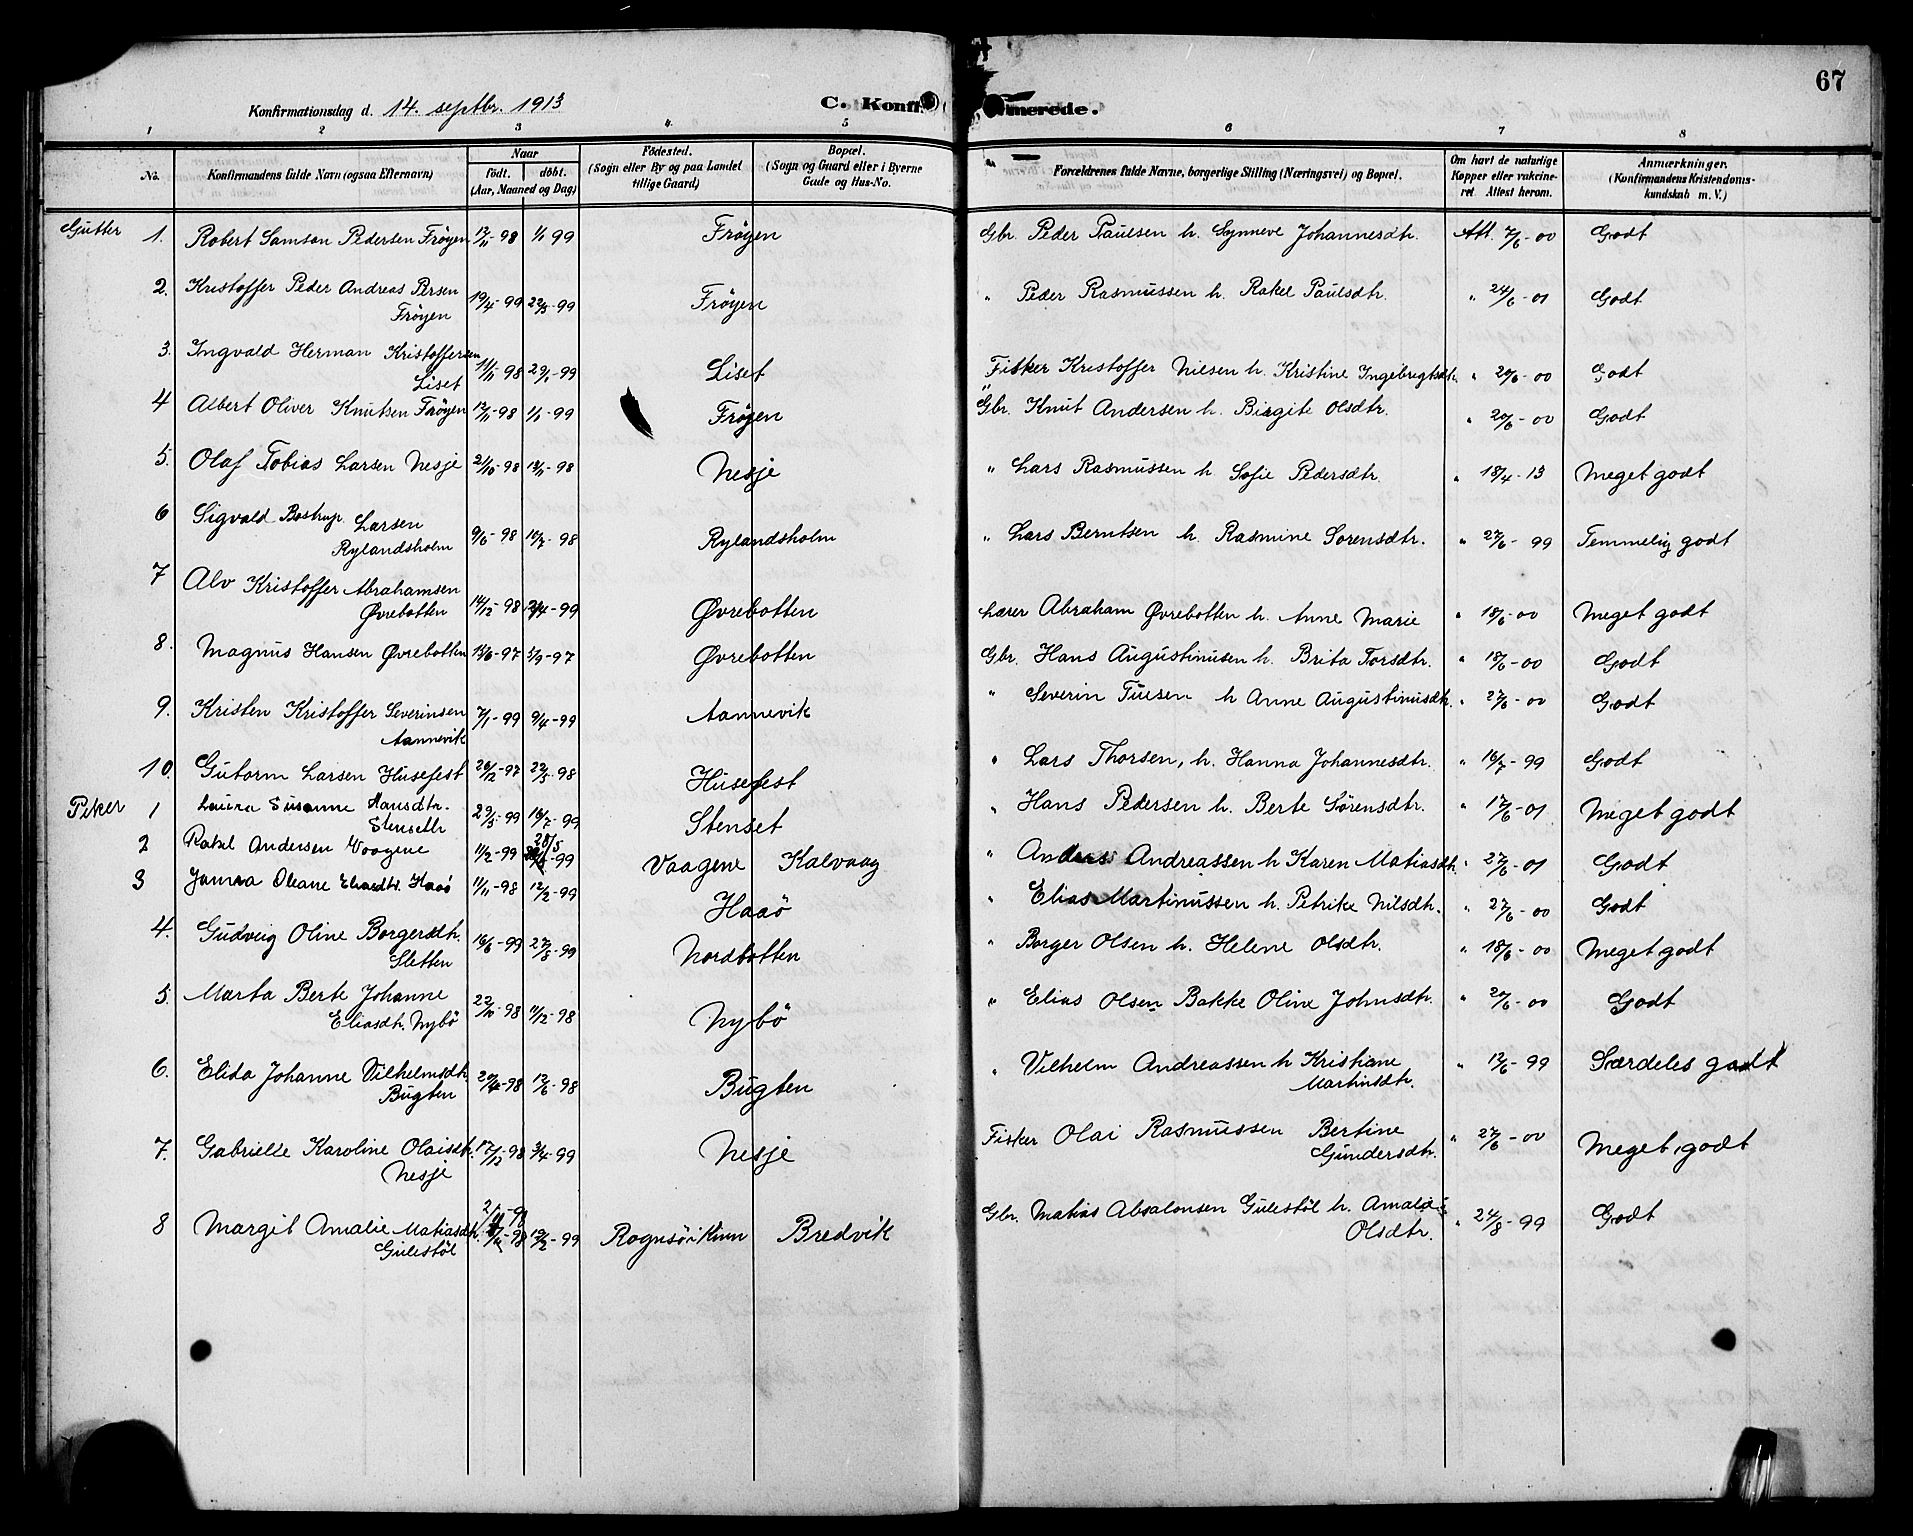 67
Konfirmationsdag d. 14. septbr. 1913 C. Konfirmerede.
1 2 3 4 5 6 7 8
No. Konfirmandens fulde Navn (ogsaa Efternavn) Naar født. døbt. (Aar, Maaned og Dag) Fødested. (Sogn eller By og paa Landet tillige Gaard) Bopæl. (Sogn og Gaard eller i Byerne Gade og Hus-No. Forældrenes fulde Navne, borgerlige Stilling (Næringsvei) og Bopæl. Om havt de naturlige Kopper eller vakcineret Attest herom. Anmærkninger. (Konfirmandens Kristendomskundskab m. V.)
Gutter 1. Robert Samson Pedersen Frøyen 12/11 98 1/1 99 Frøyen Gbr. Peder Paulsen h. Synneve Johannesdtr. Att. 7/6-00 Godt
2. Kristoffer Peder Andreas Persen
Frøyen 19/4-99 22/5-99 Frøyen " Peder Rasmussen h. Rakel Paulsdtr. " 24/6-01 Godt
3. Ingvald Herman Kristoffersen
Liset 11/11-98 29/1-99 Liset Fisker Kristoffer Nilsen h. Kristine Ingebrigtsdtr. " 20/6-00 Godt
4 Albert Oliver Knutsen Frøyen 12/11-98 1/1-99 Frøyen Gbr. Knut Andersen h. Birgite Olsdtr. " 20/6-00 Godt
5. Olaf Tobias Larsen Nesje 2/10-98 13/11-98 Nesje " Lars Rasmussen h. Sofie Pedersdtr. " 18/4-13 Meget godt
6 Sigvald Bostrup Larsen
Rylandsholm 9/5-98 10/7-98 Rylandsholm " Lars Berntsen h. Rasmine Sørensdtr. " 27/6-99 Temmelig godt
7 Alv Kristoffer Abrahamsen
Øvrebotten 14/12-98 /4-99 Øvrebotten Lærer Abraham Øvrebotten h. Anne Marie " 18/6-00 Meget godt
8. Magnus Hansen Øvrebotten 15/6-97 5/9-97 Øvrebotten Gbr. Hans Augustinusen h. Brita Torsdtr. " 18/6-00 Godt
9. Kristen Kristoffer Severinsen
Aannevik 7/1-99 9/4-99 Aannevik " Severin Tuesen h Anne Augustinusdtr. " 27/6-00 Godt
10. Gutorm Larsen Husefest 26/12-97 22/5-98 Husefest " Lars Thorsen, h. Hanna Johannesdtr. " 16/7-99 Godt
Piker 1 Laura Susanne Hansdtr.
Stensett 29/5-99 16/7-99 Stenset " Hans Pedersen h. Berte Sørensdtr. " 17/6-01 Meget godt
2 Rakel Andersen Vaagene 11/2-99 28/5 -99 Vaagene Kalvaag " Anders Andreassen h Karen Matiasdtr. " 27/6-01 Godt
3 Janna Oleane Eliasdtr. Haaö 11/11-98 12/2-99 Haaö " Elias Martinussen h. Petrike Nilsdtr. " 27/6-00 Godt
4. Gudveig Oline Borgersdtr.
Sletten 16/6-99 27/8-99 Nordbotten " Borger Olsen h. Helene Olsdtr. " 18/6-00 Meget godt
5. Marta Berte Johanne
Eliasdtr. Nybö 22/10-98 11/12-98 Nybö " Elias Olsen Bakke Oline Johnsdtr. " 20/6-00 Godt
6. Elida Johanne Vilhelmsdtr.
Bugten 20/4-98 12/6-98 Bugten " Vilhelm Andreassen h Kristiane
Martinsdtr. " 12/6-99 Særdeles godt
7. Gabrielle Karoline Olaisdtr.
Nesje 17/12-98 3/4-99 Nesje Fisker Olai Rasmussen Bertine
Gundersdtr. " 27/6-00 Meget godt
8 Margit Amalie Matiasdtr.
Gulestöl -98 12/2-99 Rognsö i Kinn Bredvik Gbr. Matias Absalonsen Gulestöl h. Amalia
Olsdtr. " 24/8-99 Godt